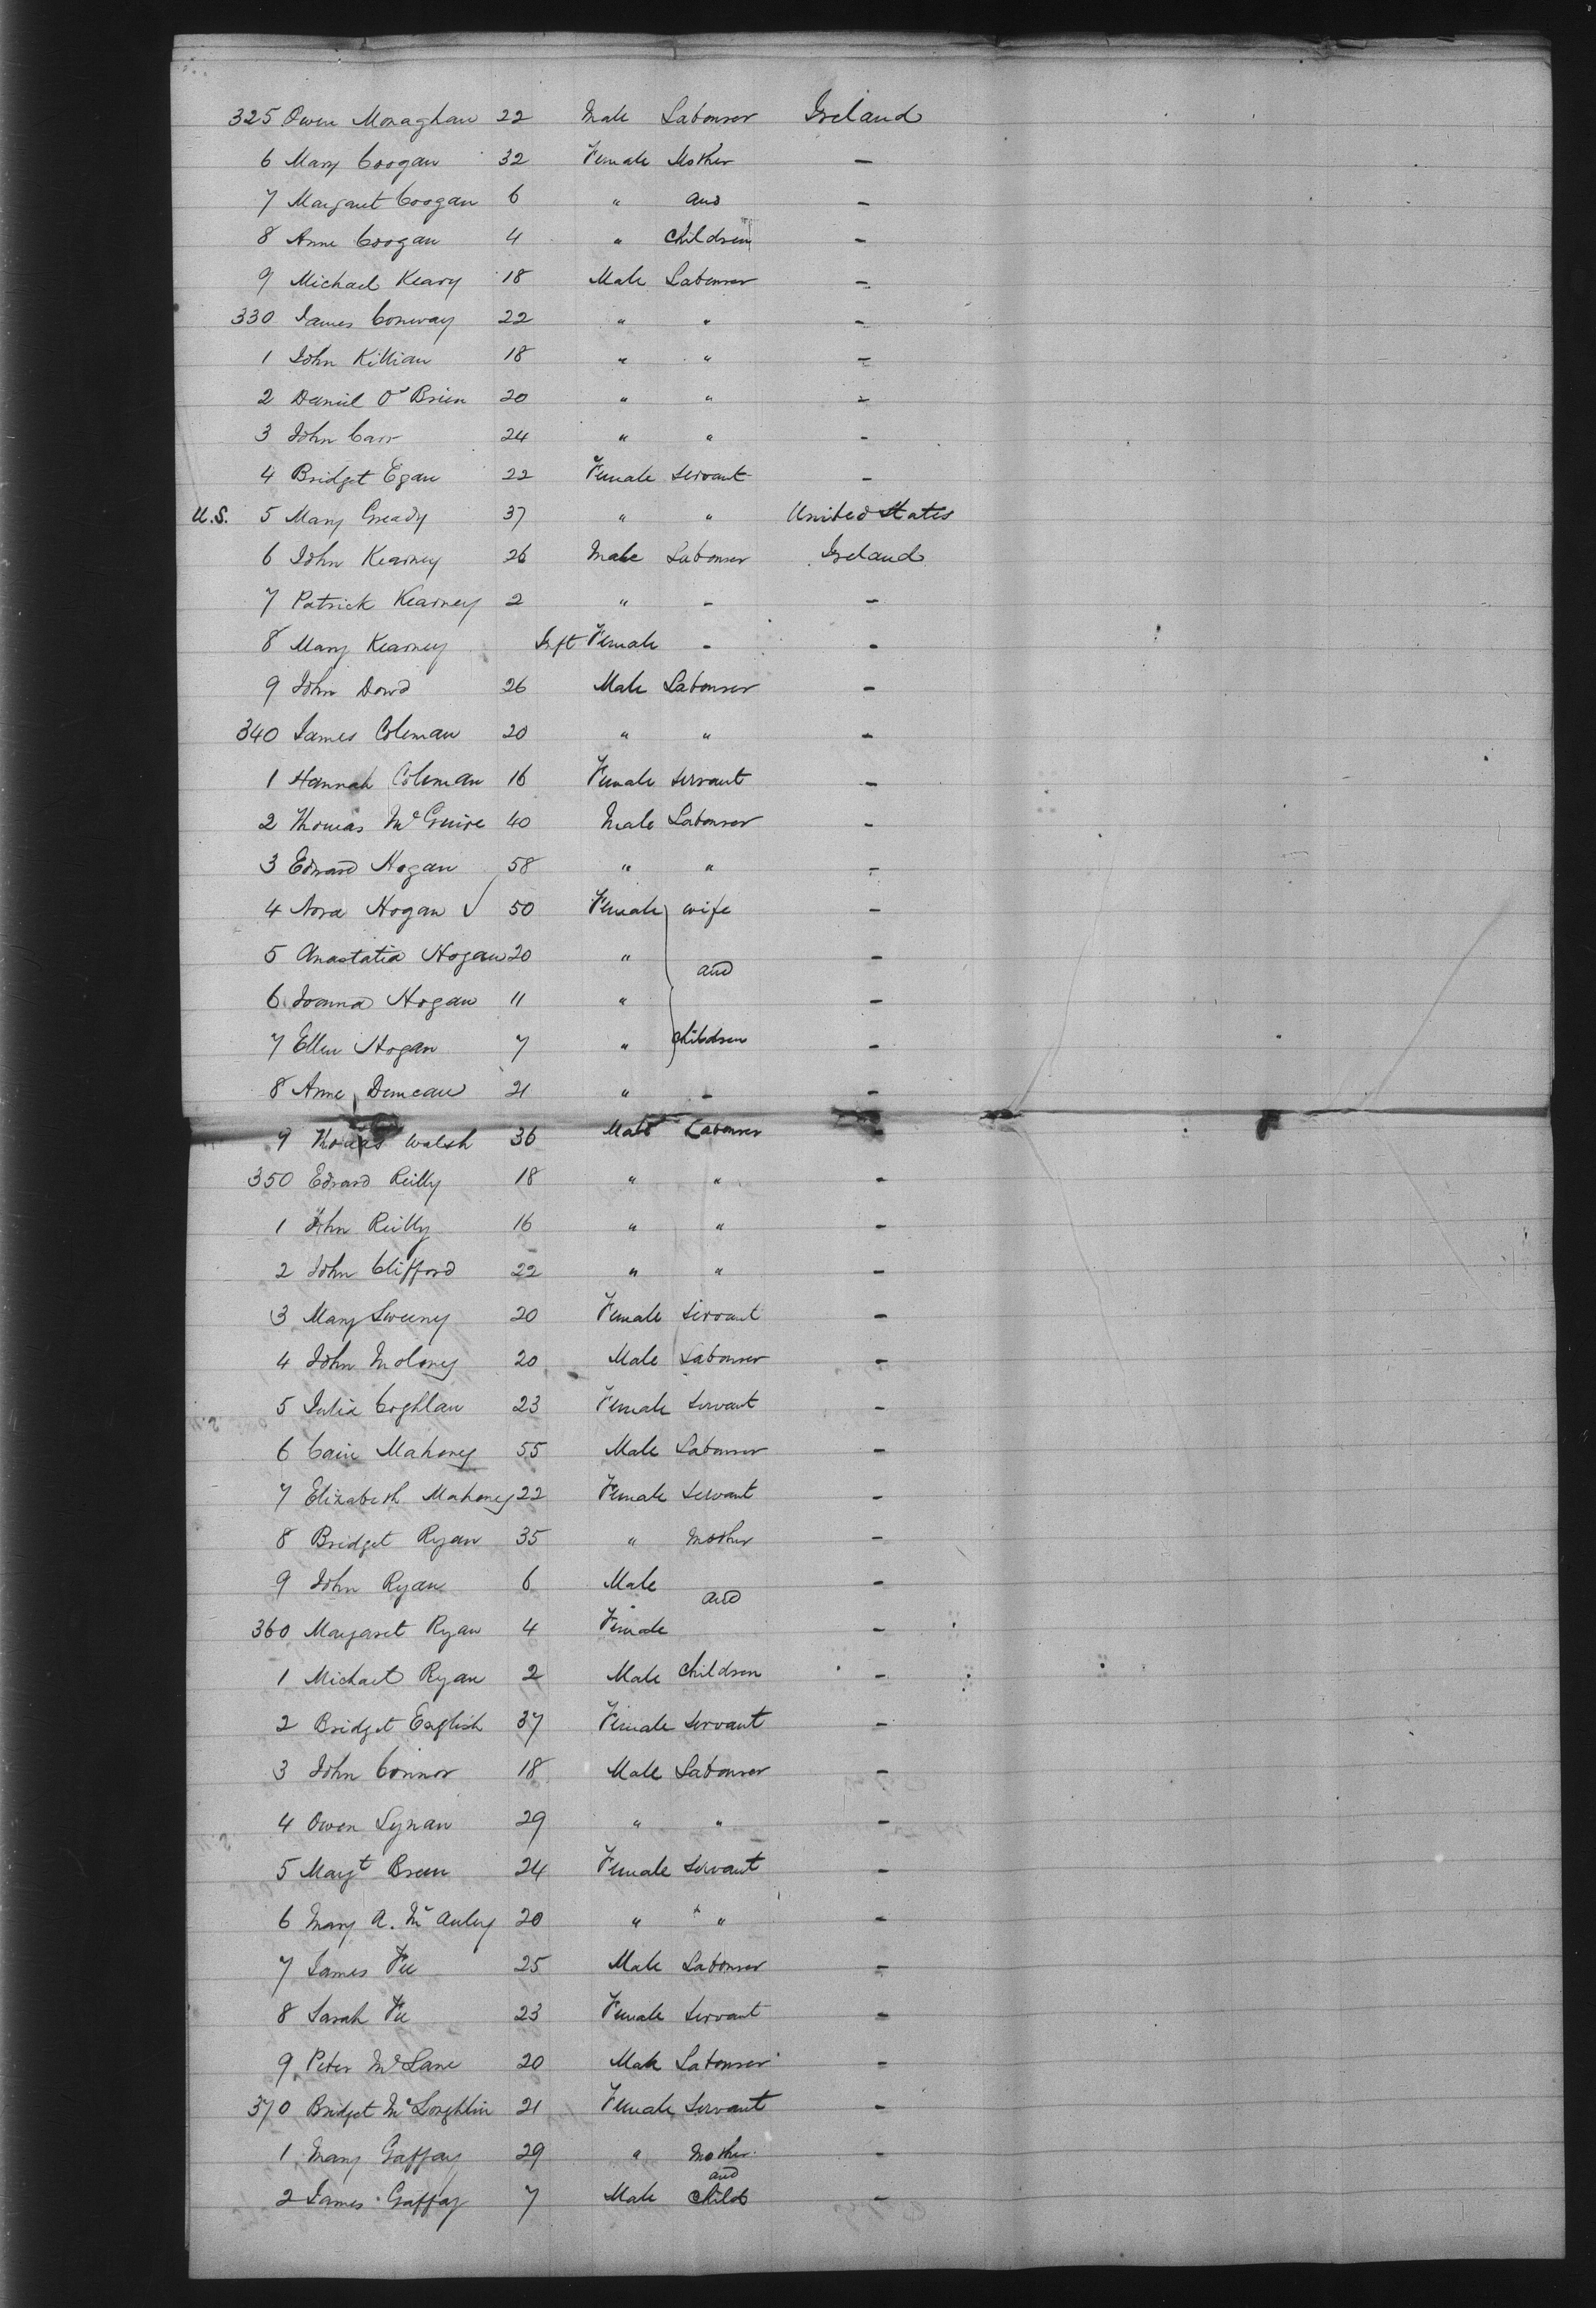 325 Owen Monaghan 22 Male Labourer Ireland
6 Mary Coogan 32 Female Mother -
7 Margaret Coogan 6 " and -
8 Anne Coogan 4 " Children -
9 Michael Keary 18 Male Labourer -
330 James Conway 22 " " -
1 John Killian 18 " " -
2 Daniel O'Brien 20 " " -
3 John Carr 24 " " -
4 Bridget Egan 22 Female Servant -
U.S. 5 Mary Gready 37 " " United States
6 John Kearney 26 Male Labourer Ireland
7 Patrick Kearney 2 " - -
8 Mary Kearney Inft Female - -
9 John Dowd 26 Male Labourer -
340 James Coleman 20 " " -
1 Hannah Coleman 16 Female Servant -
2 Thomas McGuire 40 Male Labourer -
3 Edward Hogan 58 " " -
4 Nora Hogan √ 50 Female wife -
5 Anastatia Hogan 20 " and -
6 Joanna Hogan 11 " -
7 Ellen Hogan 7 " Children -
8 Anne Duncan 21 " - -
9 Thomas Walsh 36 Male Labourer -
350 Edward Reilly 18 " " -
1 John Reilly 16 " " -
2 John Clifford 22 " " -
3 Mary Sweeny 20 Female Servant -
4 John Molony 20 Male Labourer -
5 Julia Coghlan 23 Female Servant -
6 Mahony 55 Male Labourer -
7 Elizabeth Mahony 22 Female Servant -
8 Bridget Ryan 35 " Mother -
9 John Ryan 6 Male and -
360 Margaret Ryan 4 Female -
1 Michael Ryan 2 Male Children -
2 Bridget English 37 Female Servant -
3 John Connor 18 Male Labourer -
4 Owen Lynan 29 " " -
5 Margt Breen 24 Female Servant -
6 Mary A. McAuley 20 " " -
7 James Fee 25 Male Labourer -
8 Sarah Fee 23 Female Servant -
9 Peter McLane 20 Male Labourer -
370 Bridget McLoghlin 21 Female Servant -
1 Mary Gaffay 29 " Mother -
and
2 James Gaffay 7 Male Child -